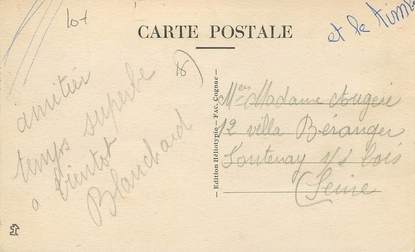 lot
CARTE POSTALE
et le Tim
18
amitiés
temps superbe
a bientot
Blanchard
Edition Héliotypie - Fac. Cognac
Madame
12 villa Béranger
Fontenay s/s Bois
(Seine)